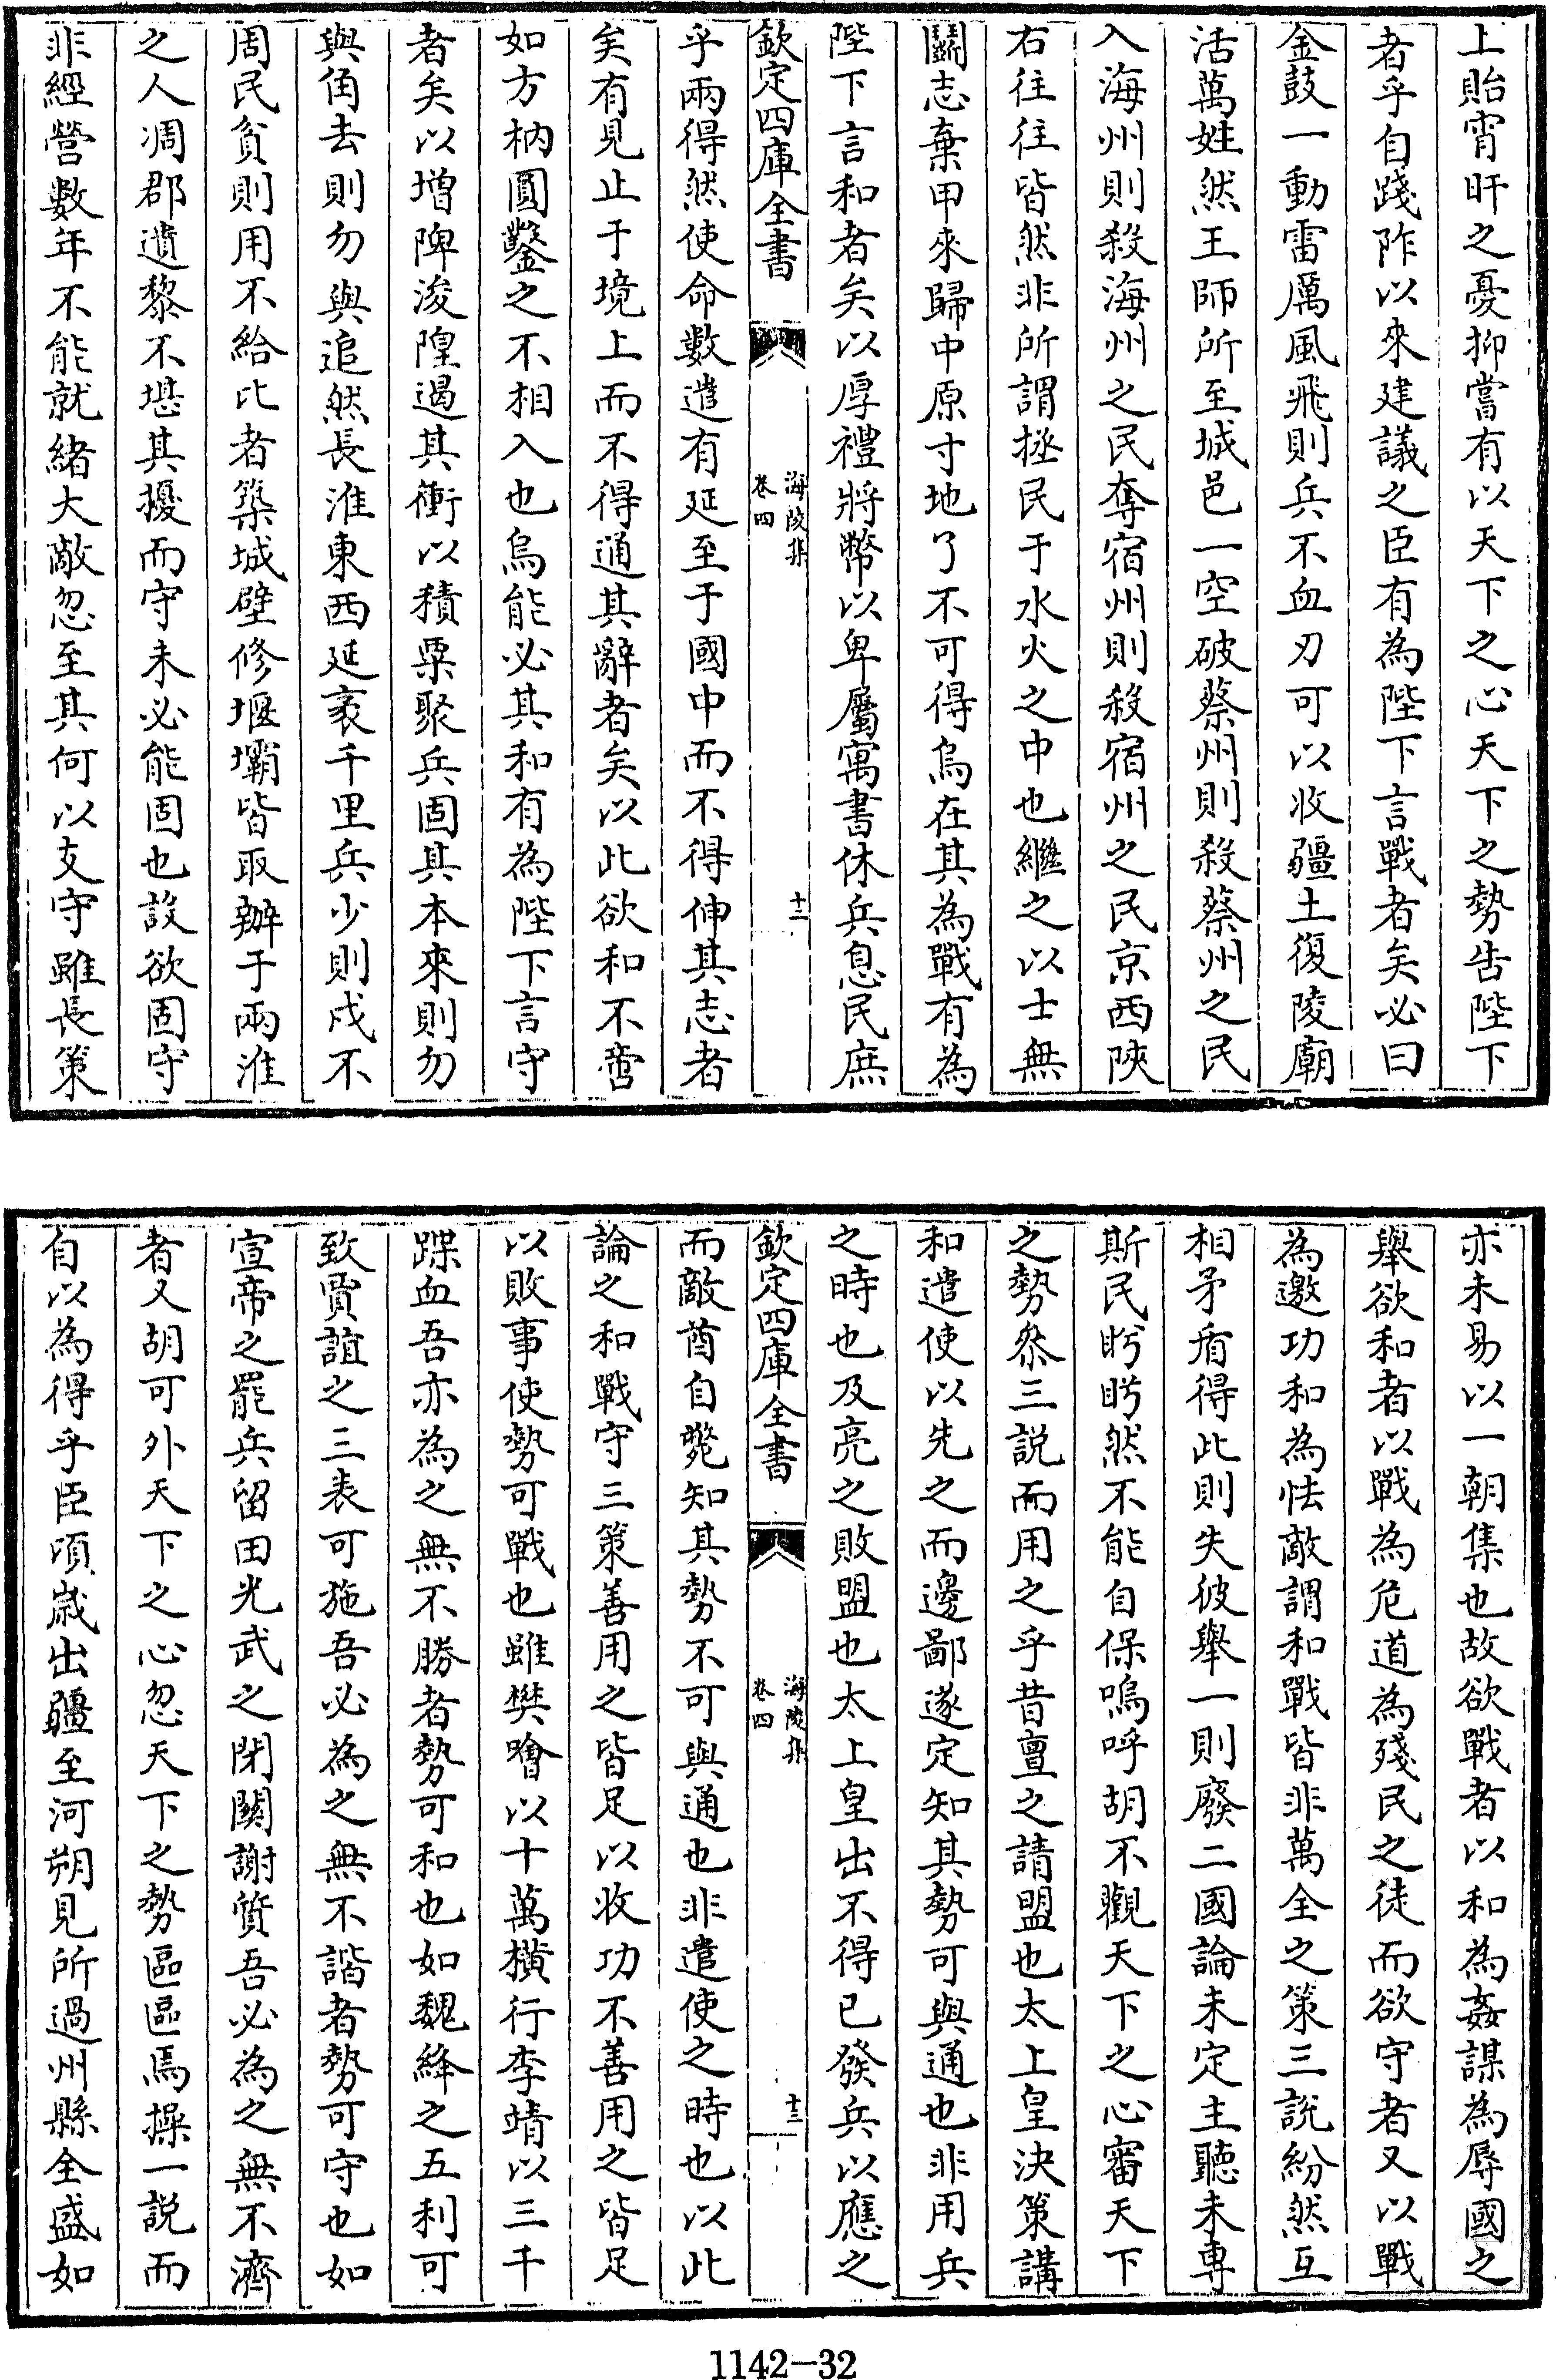 上貽宵旰之憂抑嘗有以天下之心天下之勢告陛下
者乎自踐阼以來建議之臣有為陛下言戰者矣必曰
金鼓一動雷厲風飛則兵不血刃可以收疆土復陵廟
活萬姓然王師所至城邑一空破蔡州則殺蔡州之民
入海州則殺海州之民奪宿州則殺宿州之民京西陜
右往往皆然非所謂拯民于水火之中也繼之以士無
鬬志棄甲來歸中原寸地了不可得烏在其為戰有為
陛下言和者矣以厚禮將幣以卑屬寓書休兵息民庶
欽定四庫全書
海陵集
卷四
十二
乎兩得然使命數遣有延至于國中而不得伸其志者
矣有見止于境上而不得通其辭者矣以此欲和不啻
如方枘圓鑿之不相入也烏能必其和有為陛下言守
者矣以增陴浚隍遏其衝以積粟聚兵固其本來則勿
與角去則勿與追然長淮東西延袤千里兵少則戍不
周民貧則用不給比者築城壁修堰壩皆取辦于兩淮
之人凋郡遺黎不堪其擾而守未必能固也設欲固守
非經營數年不能就緒大敵忽至其何以支守雖長策
亦未易以一朝集也故欲戰者以和為姦謀為辱國之
舉欲和者以戰為危道為殘民之徒而欲守者又以戰
為邀功和為怯敵謂和戰皆非萬全之策三説紛然互
相矛盾得此則失彼舉一則廢二國論未定主聽未專
斯民盻盻然不能自保嗚呼胡不觀天下之心審天下
之勢叅三説而用之乎昔亶之請盟也太上皇決策講
和遣使以先之而邊鄙遂定知其勢可與通也非用兵
之時也及亮之敗盟也太上皇出不得已發兵以應之
欽定四庫全書
海陵集
卷四
十三
而敵酋自斃知其勢不可與通也非遣使之時也以此
論之和戰守三策善用之皆足以收功不善用之皆足
以敗事使勢可戰也雖樊噲以十萬橫行李靖以三千
蹀血吾亦為之無不勝者勢可和也如魏絳之五利可
致賈誼之三表可施吾必為之無不諧者勢可守也如
宣帝之罷兵留田光武之閉關謝質吾必為之無不濟
者又胡可外天下之心忽天下之勢區區焉操一説而
自以為得乎臣頃歲出疆至河朔見所過州縣全盛如
1142-32